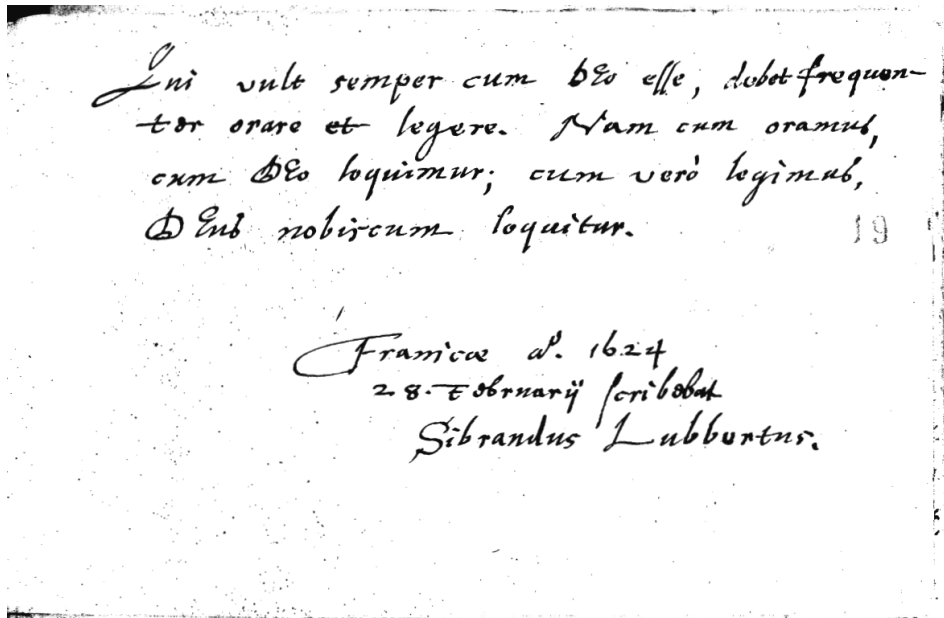 Qui vult semper cum DEo esse, debet frequen-
ter orare et legere. Nam cum oramus,
cum DEo loquimur; cum verò legimus,
DEus nobiscum loquitur.
19
Franicae aº. 1624
28. Februarij scribebat
Sibrandus Lubbertus.